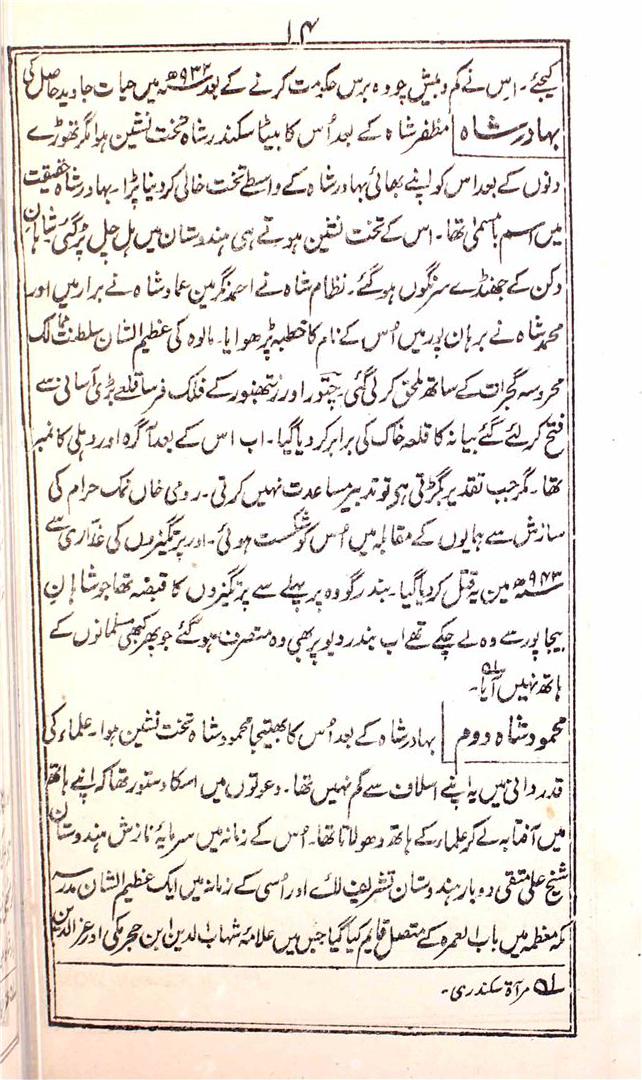 ۱۴
کیجئے۔ اس نے کم و بیش چودہ برس حکومت کرنے کے بعد ۹۳۲ھ میں حیات جاوید حاصل کی
بہادر شاہ مظفر شاہ کے بعد اُس کا بیٹا سکندر شاہ تخت نشین ہوا مگر تھوڑے
دنوں کے بعد اس کو اپنے بھائی بہادر شاہ کے واسطے تخت خالی کر دینا پڑا۔ بہادر شاہ حقیقت
میں اسم بامسمیٰ تھا۔ اس کے تخت نشین ہوتے ہی ہندوستان میں ہل چل پڑ گئی شاہانِ
دکن کے جھنڈے سرنگوں ہو گئے۔ نظام شاہ نے احمد نگر میں عماد شاہ نے برار میں اور
محمد شاہ نے برہان پور میں اُس کے نام کا خطبہ پڑھوایا۔ مالوہ کی عظیم الشان سلطنت ممالک
محروسہ گجرات کے ساتھ ملحق کر لی گئی۔ چتور اور رنتھنبور کے فلک فرسا قلعے بڑی آسانی سے
فتح کر لئے گئے بیانہ کا قلعہ خاک کی برابر کر دیا گیا۔ اب اس کے بعد آگرہ اور دہلی کا نمبر
تھا۔ مگر جب تقدیر بگڑتی ہی تو تدبیر مساعدت نہیں کرتی۔ رومی خاں نمک حرام کی
سازش سے ہمایوں کے مقابلہ میں اُس کو شکست ہوئی۔ اور پرتگیزوں کی غداری سے
۹۴۳ھ میں یہ قتل کر دیا گیا۔ بندر گووہ پر پہلے سے پرتگیزوں کا قبضہ تھا جو شاہانِ
بیجاپور سے وہ لے چکے تھے اب بندر دیو پر بھی وہ متصرف ہو گئے جو پھر کبھی مسلمانوں کے
ہاتھ نہیں آیا۔ ؎۱
محمود شاہ دوم بہادر شاہ کے بعد اُس کا بھتیجا محمود شاہ تخت نشین ہوا۔ علماء کی
قدردانی میں یہ اپنے اسلاف سے کم نہیں تھا۔ دعوتوں میں اسکا دستور تھا کہ اپنے ہاتھ
میں آفتابہ لے کر علماء کے ہاتھ دھولاتا تھا۔ اُس کے زمانہ میں سرمایۂ نازش ہندوستان
شیخ علی متقی دوبار ہندوستان تشریف لائے اور اُسی کے زمانہ میں ایک عظیم الشان مدرسہ
مکہ معظمہ میں باب العمرہ کے متصل قایم کیا گیا جس میں علامۂ شہاب الدین ابن حجر مکی اور عز الدین
؎۱ مرآۃ سکندری۔